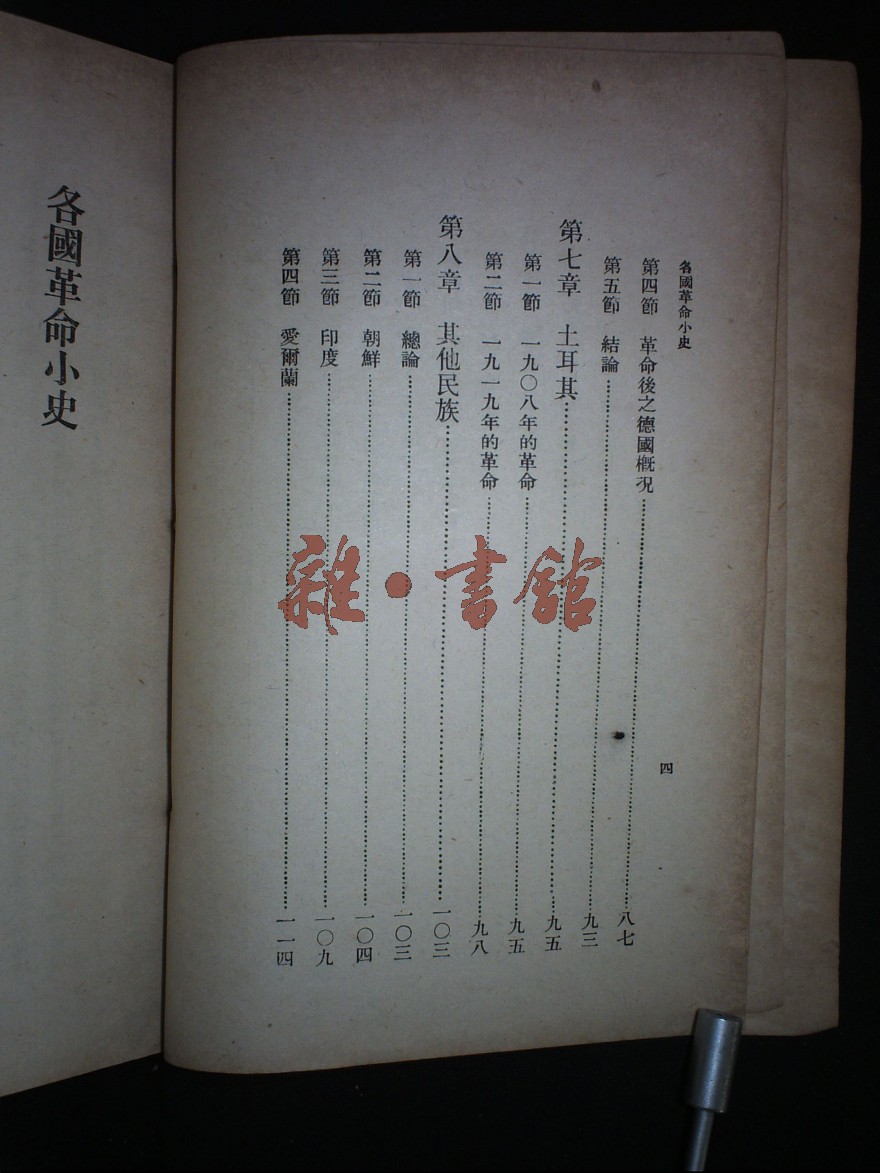 各國革命小史
第四節 革命後之德國概況……八七
第五節 結論……九三
第七章 土耳其……九五
第一節 一九〇八年的革命……九五
第二節 一九一九年的革命……九八
第八章 其他民族……一〇三
第一節 總論……一〇三
第二節 朝鮮……一〇四
第三節 印度……一〇九
第四節 愛爾蘭……一一四
四
各國革命小史
雜·書館